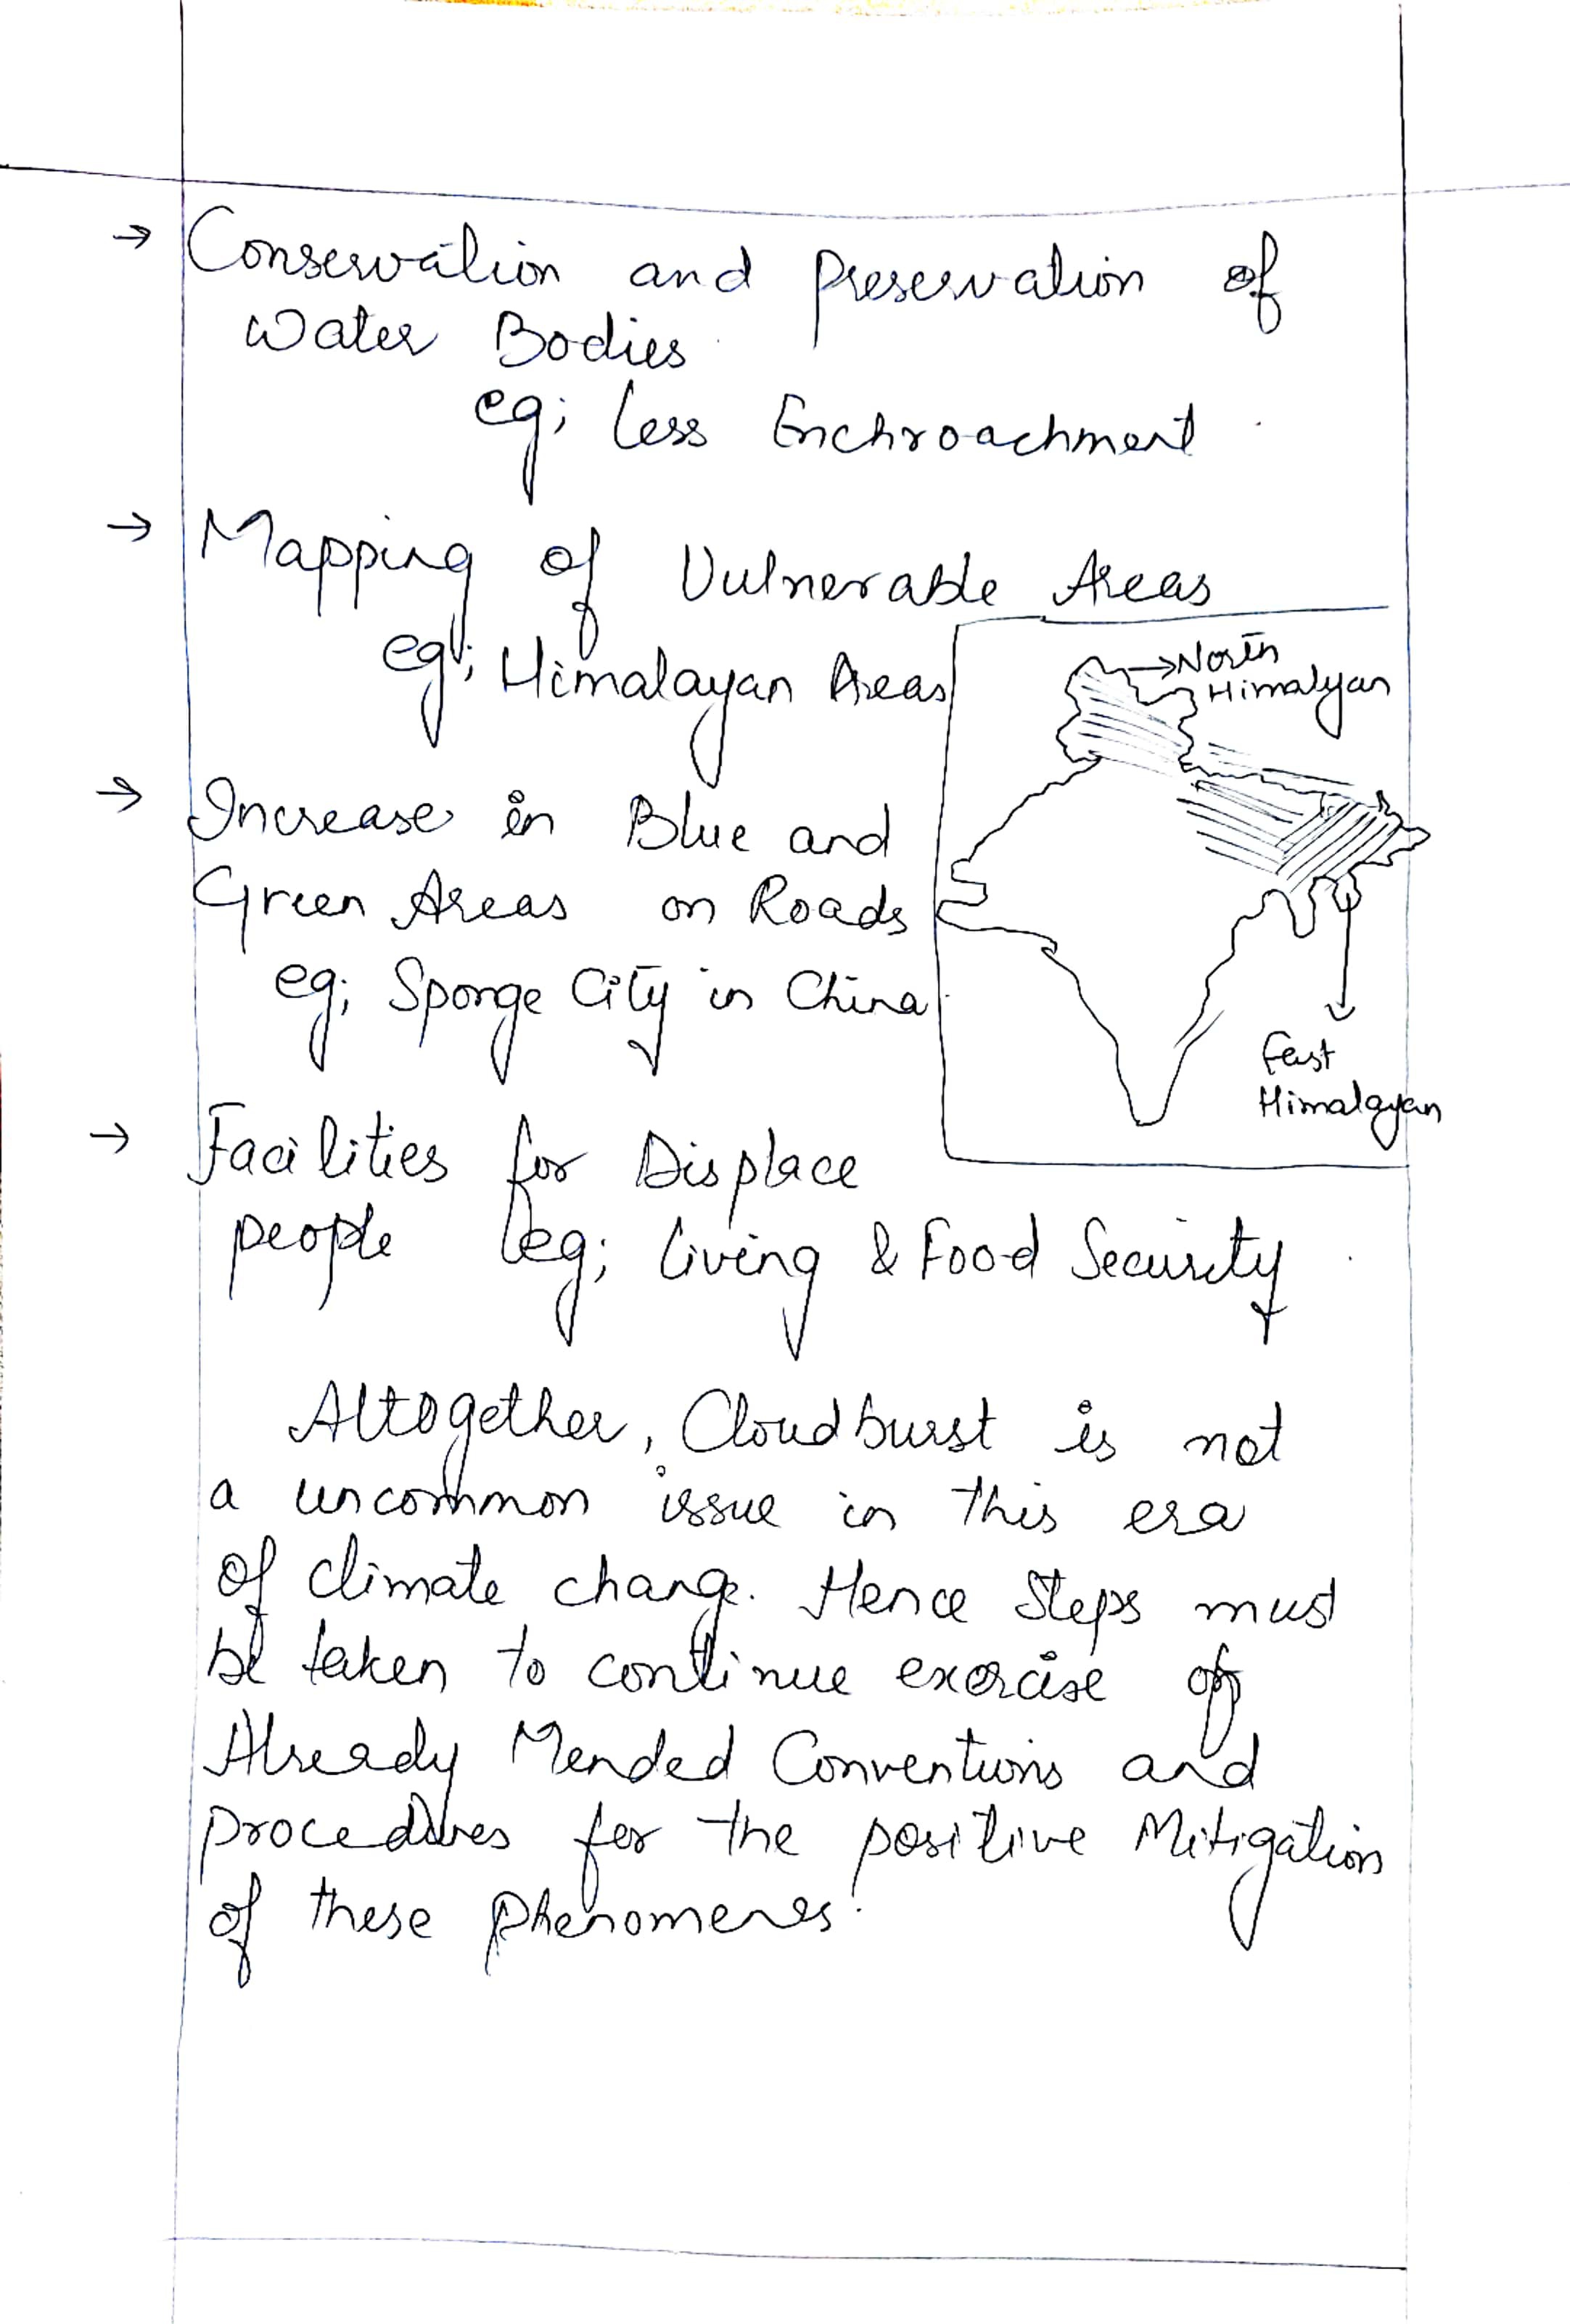 → Conservation and preservation of
Water Bodies
eg; less Enchroachment
→ Mapping of Vulnerable Areas
eg; Himalayan Areas
→ North
Himalyan
→ Increase in Blue and
Green Areas on Roads
eg; Sponge City in China
East
Himalayan
→ Facilities for Displace
people eg; living & Food Security
Altogether, Cloudburst is not
a uncommon issue in this era
of climate change. Hence Steps must
be taken to continue exercise of
Already Mended Conventions and
procedures for the positive Mitigation
of these phenomenes.